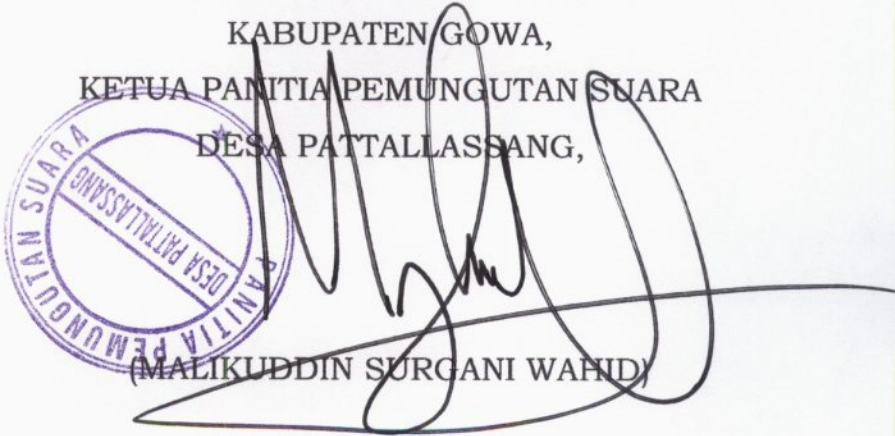 KABUPATEN GOWA,
KETUA PANITIA PEMUNGUTAN SUARA
DESA PATTALLASSANG,
PANITIA PEMUNGUTAN SUARA
DESA PATTALLASSANG
(MALIKUDDIN SURGANI WAHID)